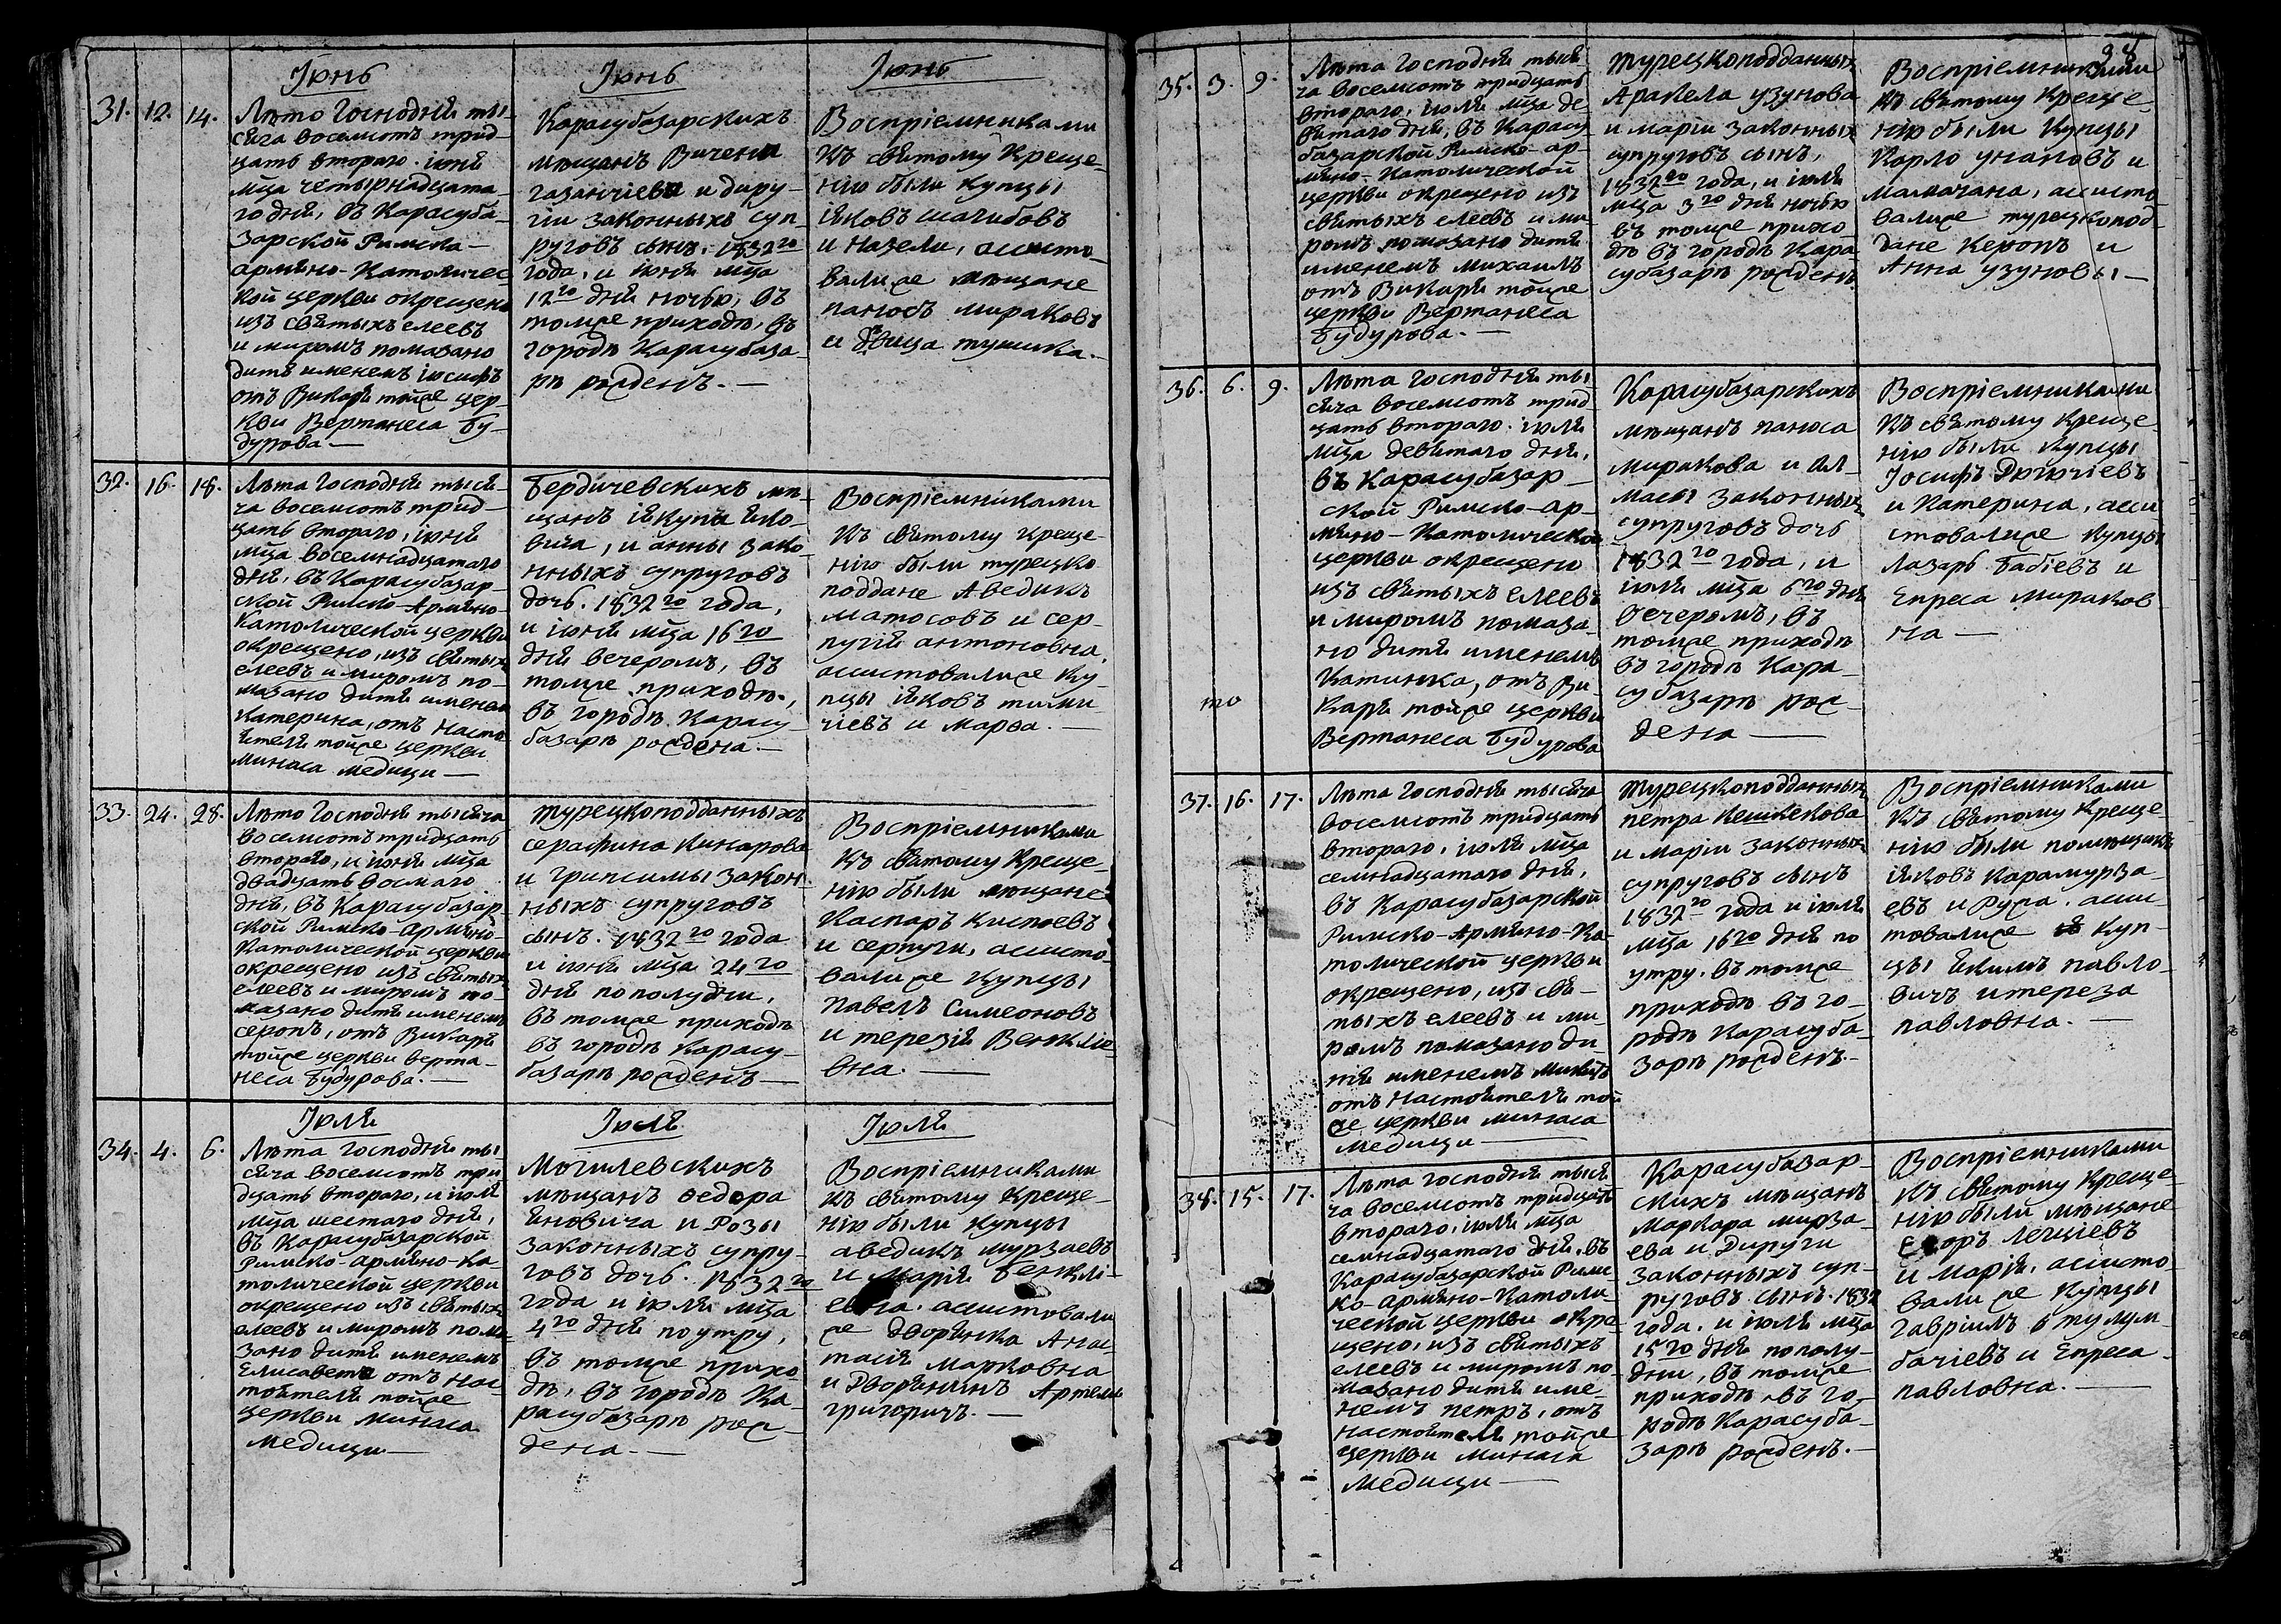 Іюнь
31. 12. 14.
Лѣто Господня ты-
сяча восемсотъ трид-
цать втораго. іюня
мца четырнадцата-
го дня, въ Карасуба-
зарской Римска-
армяно-Католичес-
кой церкви окрещено
изъ святыхъ елеевъ
и миромъ помазано
дитя именемъ іосифъ
отъ Викаря тойже цер-
кви Вертанеса Бу-
дурова.—
Іюнь
Карасубазарскихъ
мѣщанъ Вичена
газанчіева и диру-
гіи законныхъ суп-
руговъ сынъ. 1832го
года, и іюня мца
12го дня ночью, въ
томже приходѣ, въ
городѣ Карасубаза-
рѣ рожденъ.—
Іюнь
Воспріемниками
Къ святому Креще-
нію были купцы
іяковъ шагибовъ
и назели, асисто-
валисе мѣщане
паносъ мираковъ
и двица тушика.—
32. 16. 18.
Лѣта Господня тыся-
ча восемсотъ трид-
цать втораго, іюня
мца восемнадцатаго
дня, въ Карасубазар-
ской Римско-Армяно-
Католической церкви
окрещено, изъ святыхъ
елеевъ и миромъ по-
мазано дитя именем
Катерина, отъ Насто-
ятеля тойже церкви
минаса медици—
Бердичевскихъ мѣ-
щанъ іякупа яко-
вича, и анны зако-
нныхъ супруговъ
дочь. 1832го года,
и іюня мца 16го
дня вечеромъ, въ
томже приходѣ,
въ городѣ Карасу-
базарѣ рождена.—
Воспріемниками
Къ святому Креще-
нію были турецко
поддане Аведикъ
матосовъ и сер-
пугія антоновна,
асистовалисе Ку-
пцы іяковъ тими-
чіевъ и марѳа.—
33. 24. 28.
Лѣто Господня тысяча
восемсотъ тридцать
втораго, и іюня мца
двадцать восмаго
дня, въ Карасубазар-
ской Римско-Армяно-
Католической церкви
окрещено изъ святыхъ
елеевъ и миромъ по-
мазано дитя именемъ
серопъ, отъ Викаря
тойже церкви верта-
неса Будурова.—
турецкоподданныхъ
серафина Кинарова
и грипсимы закон-
ныхъ супруговъ
сынъ. 1832го года
и іюня мца 24го
дня пополудни,
въ томже приходѣ
въ городѣ Карасу-
базарѣ рожденъ—
Воспріемниками
Къ святому Креще-
нію были мѣщане
Каспаръ Киспоевъ
и серпуги, асисто-
валисе купцы
павелъ Симеоновъ
и терезія Венкліе-
вна.—
Іюля
34. 4. 6.
Лѣта Господня ты-
сяча восемсотъ три-
дцать втораго, и іюля
мца шестаго дня,
въ Карасубазарской
Римско-Армяно-Ка-
толической церкви
окрещено изъ святыхъ
елеевъ и миромъ пома-
зано дитя именемъ
Елисавета отъ нас-
тоятеля тойже
церкви минаса
медици—
Іюля
Могилевскихъ
мѣщанъ ѳедора
яновича и Розы
законныхъ супру-
говъ дочь. 1832го
года и іюля мца
4го дня поутру,
въ томже прихо-
дѣ, въ городѣ Ка-
расубазарѣ рож-
дена.—
Іюля
Воспріемниками
Къ святому Креще-
нію были купцы
аведикъ мурзаевъ
и Марія Бенклі-
евна. асистовали
се дворянка Анас-
тасія марковна
и Дворянинъ Артемъ
григоричъ.—
38
35. 3. 9.
Лѣта Господня тыся-
ча восемсотъ тридцать
втораго, іюля мца де-
вятаго дня, въ Карасу-
базарской Римско-ар-
мяно-Католической
церкви окрещено изъ
святыхъ елеевъ и ми-
ромъ помазано дитя
именемъ михаилъ
отъ Викаря тойже
церкви Вертанеса
Будурова.—
турецкоподданныхъ
Аракела узунова
и маріи законныхъ
супруговъ сынъ,
1832го года, и іюля
мца 3го дня ночью
въ томже прихо-
дѣ въ городѣ Кара-
субазарѣ рожденъ
Воспріемниками
Къ святому Креще-
нію были купцы
Карло унановъ и
мамачана, асисто-
валисе турецкопод-
дане Керопъ и
Анна узуновы—
36. 6. 9.
Лѣта Господня ты-
сяча восемсотъ трид-
цать втораго. іюля
мца девятаго дня,
въ Карасубазар-
ской Римско-ар-
мяно-Католической
церкви окрещено
изъ святыхъ елеевъ
и миромъ помаза-
но дитя именемъ
Катинка, отъ Ви-
каря тойже церкви
Вертанеса Будурова
то
Карасубазарскихъ
мѣщанъ паноса
миракова и Ал-
масы законныхъ
супруговъ дочь
1832го года, и
іюля мца 6го дня
вечеромъ, въ
томже приходѣ
въ городѣ Кара-
субазарѣ рож-
дена—
Воспріемниками
Къ святому Креще-
нію были купцы
Іосифъ
и Катерина, аси-
стовалисе купцы
Лазарь Бабіевъ и
Епреса мираков-
на—
37. 16. 17.
Лѣта Господня тысяча
восемсотъ тридцать
втораго, іюля мца
семнадцатаго дня,
въ Карасубазарской
Римско-Армяно-Ка-
толической церкви
окрещено, изъ свя-
тыхъ елеевъ и ми-
ромъ помазано ди-
тя именемъ
отъ настоятеля той
же церкви минаса
медици—
турецкоподданныхъ
петра Кешкекова
и маріи законныхъ
супруговъ сынъ
1832го года и іюля
мца 16го дня по
утру. въ томже
приходѣ въ го-
родѣ Карасуба-
зарѣ рожденъ.—
Воспріемниками
Къ святому Креще-
нію были помѣщикъ
іяковъ Карамурза-
евъ и Руса. асис-
товалисе куп-
цы якимъ павло-
вичъ и тереза
павловна.—
38. 15. 17.
Лѣта Господня тыся-
ча восемсотъ тридцать
втораго, іюля мца
семнадцатаго дня, въ
Карасубазарской Римс-
ко-армяно-Католи-
ческой церкви окре-
щено, изъ святыхъ
елеевъ и миромъ по-
мазано дитя име-
немъ петръ, отъ
настоятеля тойже
церкви минаса
медици—
Карасубазар-
скихъ мѣщанъ
Маркара мирза-
ева и Дируги
законныхъ суп-
руговъ сынъ. 1832
года. и іюля мца
15го дня пополу-
дни, въ томже
приходѣ въ го-
родѣ Карасуба-
зарѣ рожденъ.—
Воспріемниками
Къ святому Креще-
нію были мѣщане
Егоръ Легціевъ
и марія, асисто-
валисе купцы
гавріилъ
бачіевъ и Епреса
павловна.—